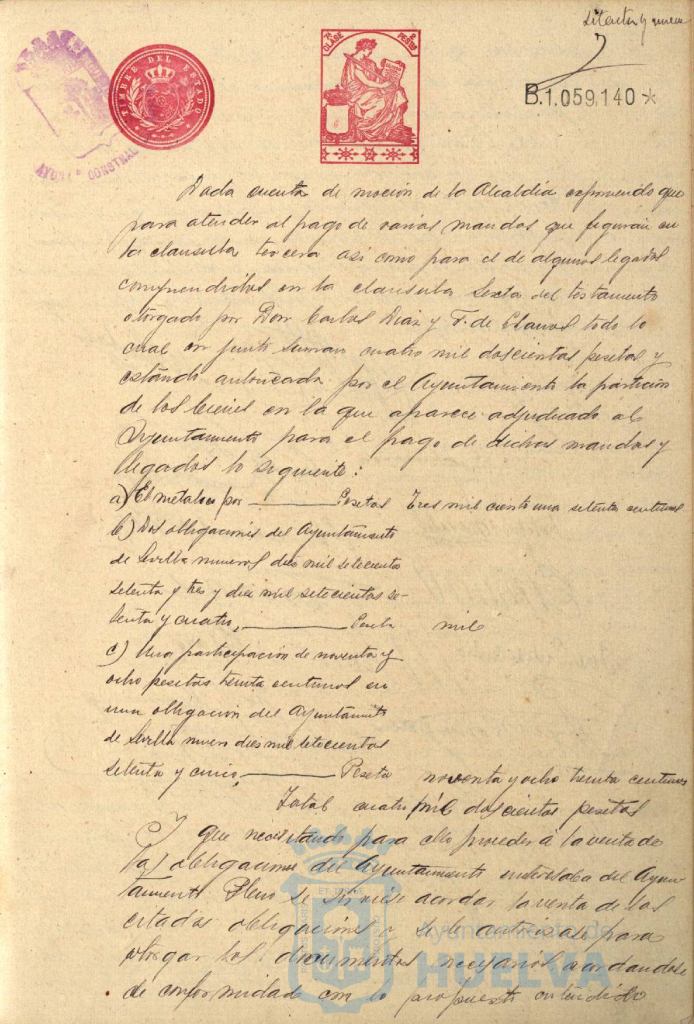 setenta y nueve
TIMBRE DEL ESTADO
7ª CLASE
PESETAS
B.1.059.140*
AYUNTº CONSTNAL
Dada cuenta de moción de la Alcaldía exponiendo que
para atender al pago de varias mandas que figuran en
la clausula tercera así como para el de algunos legados
comprendidos en la clausula sexta del testamento
otorgado por Don Carlos Diaz y F. de Llanos todo lo
cual en junto suman cuatro mil doscientas pesetas y
estando autorizada por el Ayuntamiento la particion
de los bienes en la que aparece adjudicado al
Ayuntamiento para el pago de dichas mandas y
llegados lo siguiente:
a) El metalico por Pesetas Tres mil ciento una setenta centimos
b) Dos obligaciones del Ayuntamiento
de Sevilla numeros diez mil setecientos
setenta y tres y diez mil setecientos se-
tenta y cuatro, Pesetas mil
c) Una participación de noventa y
ocho pesetas treinta centimos en
una obligación del Ayuntamiento
de Sevilla numero diez mil setecientos
setenta y cinco, Pesetas noventa y ocho treinta centimos
Total cuatro mil doscientas pesetas
Y que necesitando para ello proceder á la venta de
las obligaciones del Ayuntamiento del Ayun-
tamiento Pleno se sirviese acordar la venta de las
citadas obligaciones y se le autorizase para
otorgar los documentos necesarios acordandose
de conformidad con lo propuesto entendido
Ayuntamiento de
HUELVA